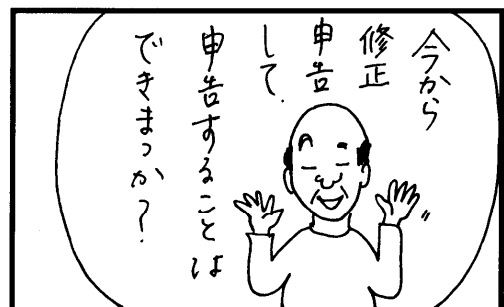 今から
修正
申告
して、
申告することは
できまっか？